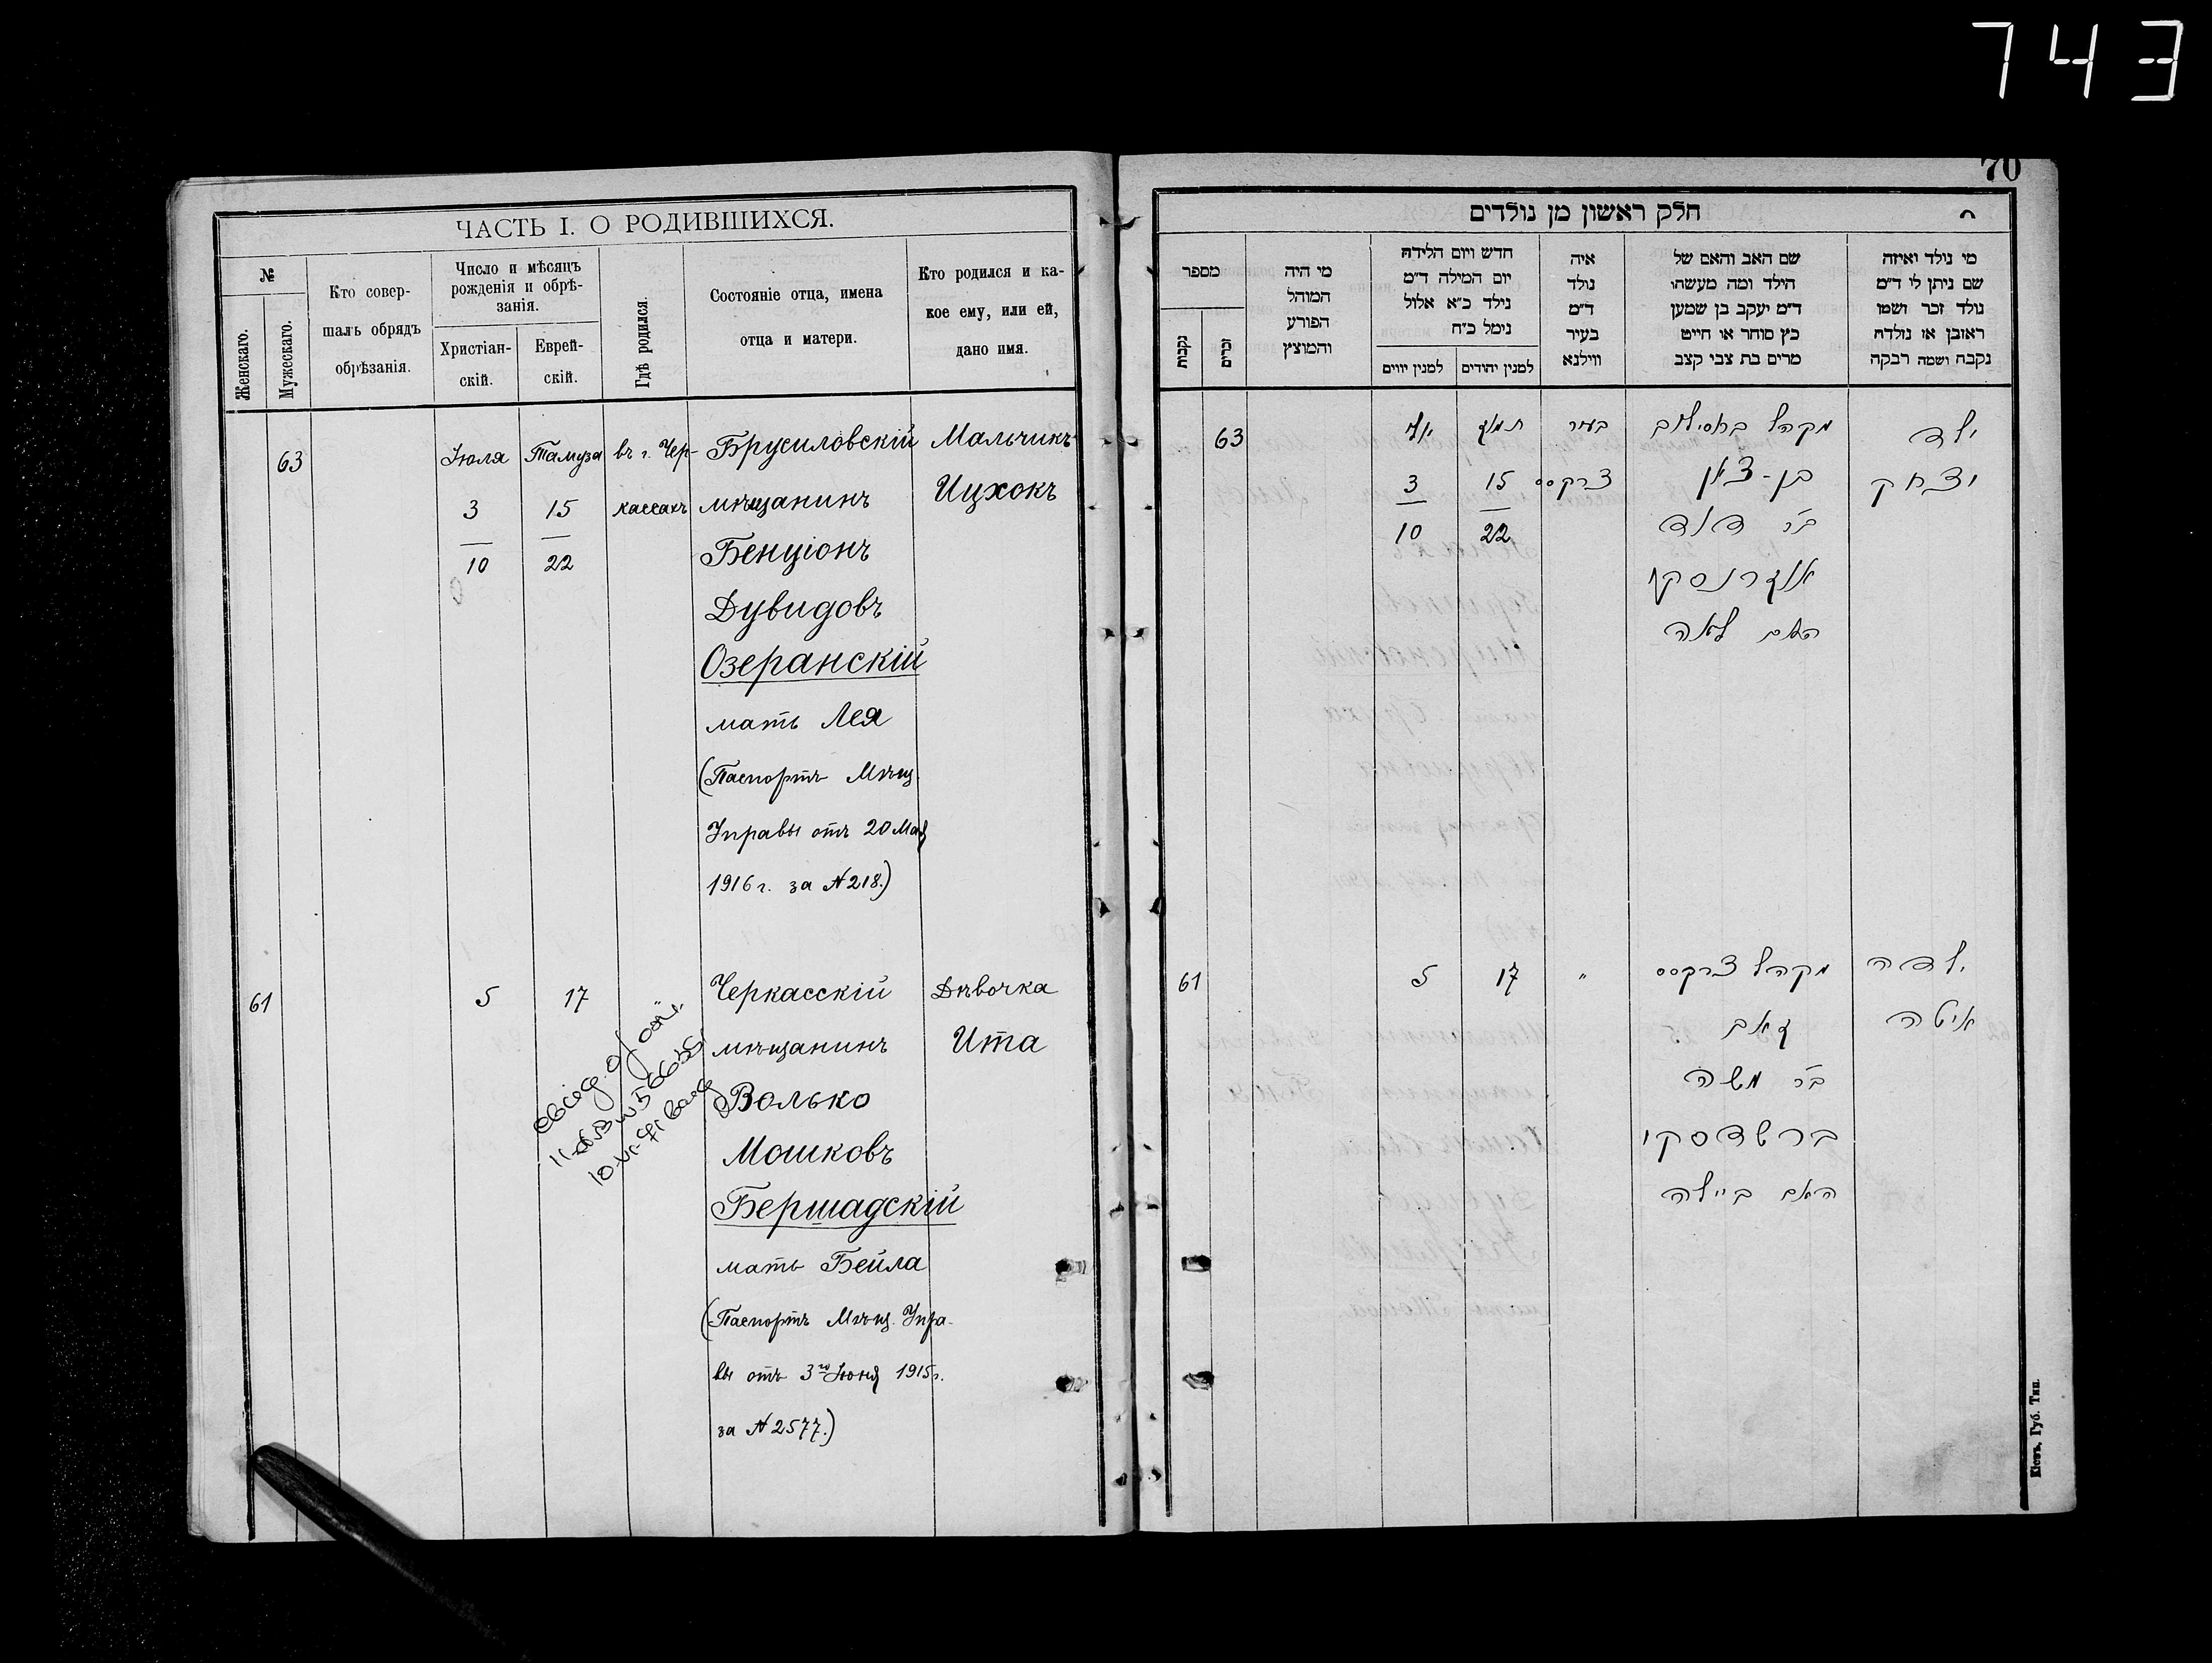 743
ЧАСТЬ I. О РОДИВШИХСЯ.
№
Женскаго.
Мужескаго.
Кто совер-
шалъ обрядъ
обрѣзанія.
Число и мѣсяцъ
рожденія и обрѣ-
занія.
Христіан-
скій.
Еврей-
скій.
Гдѣ родился.
Состояніе отца, имена
отца и матери.
Кто родился и ка-
кое ему, или ей,
дано имя.
63
Іюля
3
10
Тамуза
15
22
въ г. Чер-
кассахъ
Брусиловскій
мѣщанинъ
Бенціонъ
Дувидовъ
Озеранскій
мать Лея
(Паспортъ Мѣщ.
Управы отъ 20 Мая
1916 г. за №218.)
Мальчикъ
Ицхокъ
61
5
17
"
Черкасскій
мѣщанинъ
Волько
Мошковъ
Бершадскій
мать Бейла
(Паспортъ Мѣщ. Упра-
вы отъ 3го Іюня 1915г.
за №2577.)
Дѣвочка
Ита
70
חלק ראשון מן נולדים
מי נולד ואיזה
שם ניתן לו ד״מ
נולד זכר ושמו
ראובן או נולדה
נקבה ושמה רבקה
שם האב והאם של
הילד ומה מעשהו
ד״מ יעקב בן שמעון
כץ סוחר או חייט
מרים בת צבי קצב
איה
נולד
ד״מ
בעיר
ווילנא
חדש ויום הלידה
יום המילה ד״מ
נילד כ״א אלול
נימל כ״ח
למנין יהודים
למנין יווים
מי היה
המוהל
הפורע
והמוצץ
מספר
זכרים
נקבות
ילד
יצחק
מקהל
בן-ציון
ב״ר דוד
האם לאה
בעיר
תמוז
15
22
יולי
3
10
63
ילדה
איטה
מקהל
זאב
ב״ר משה
ברשדסקי
האם ביילה
"
17
5
61
Кіевъ, Губ. Тип.